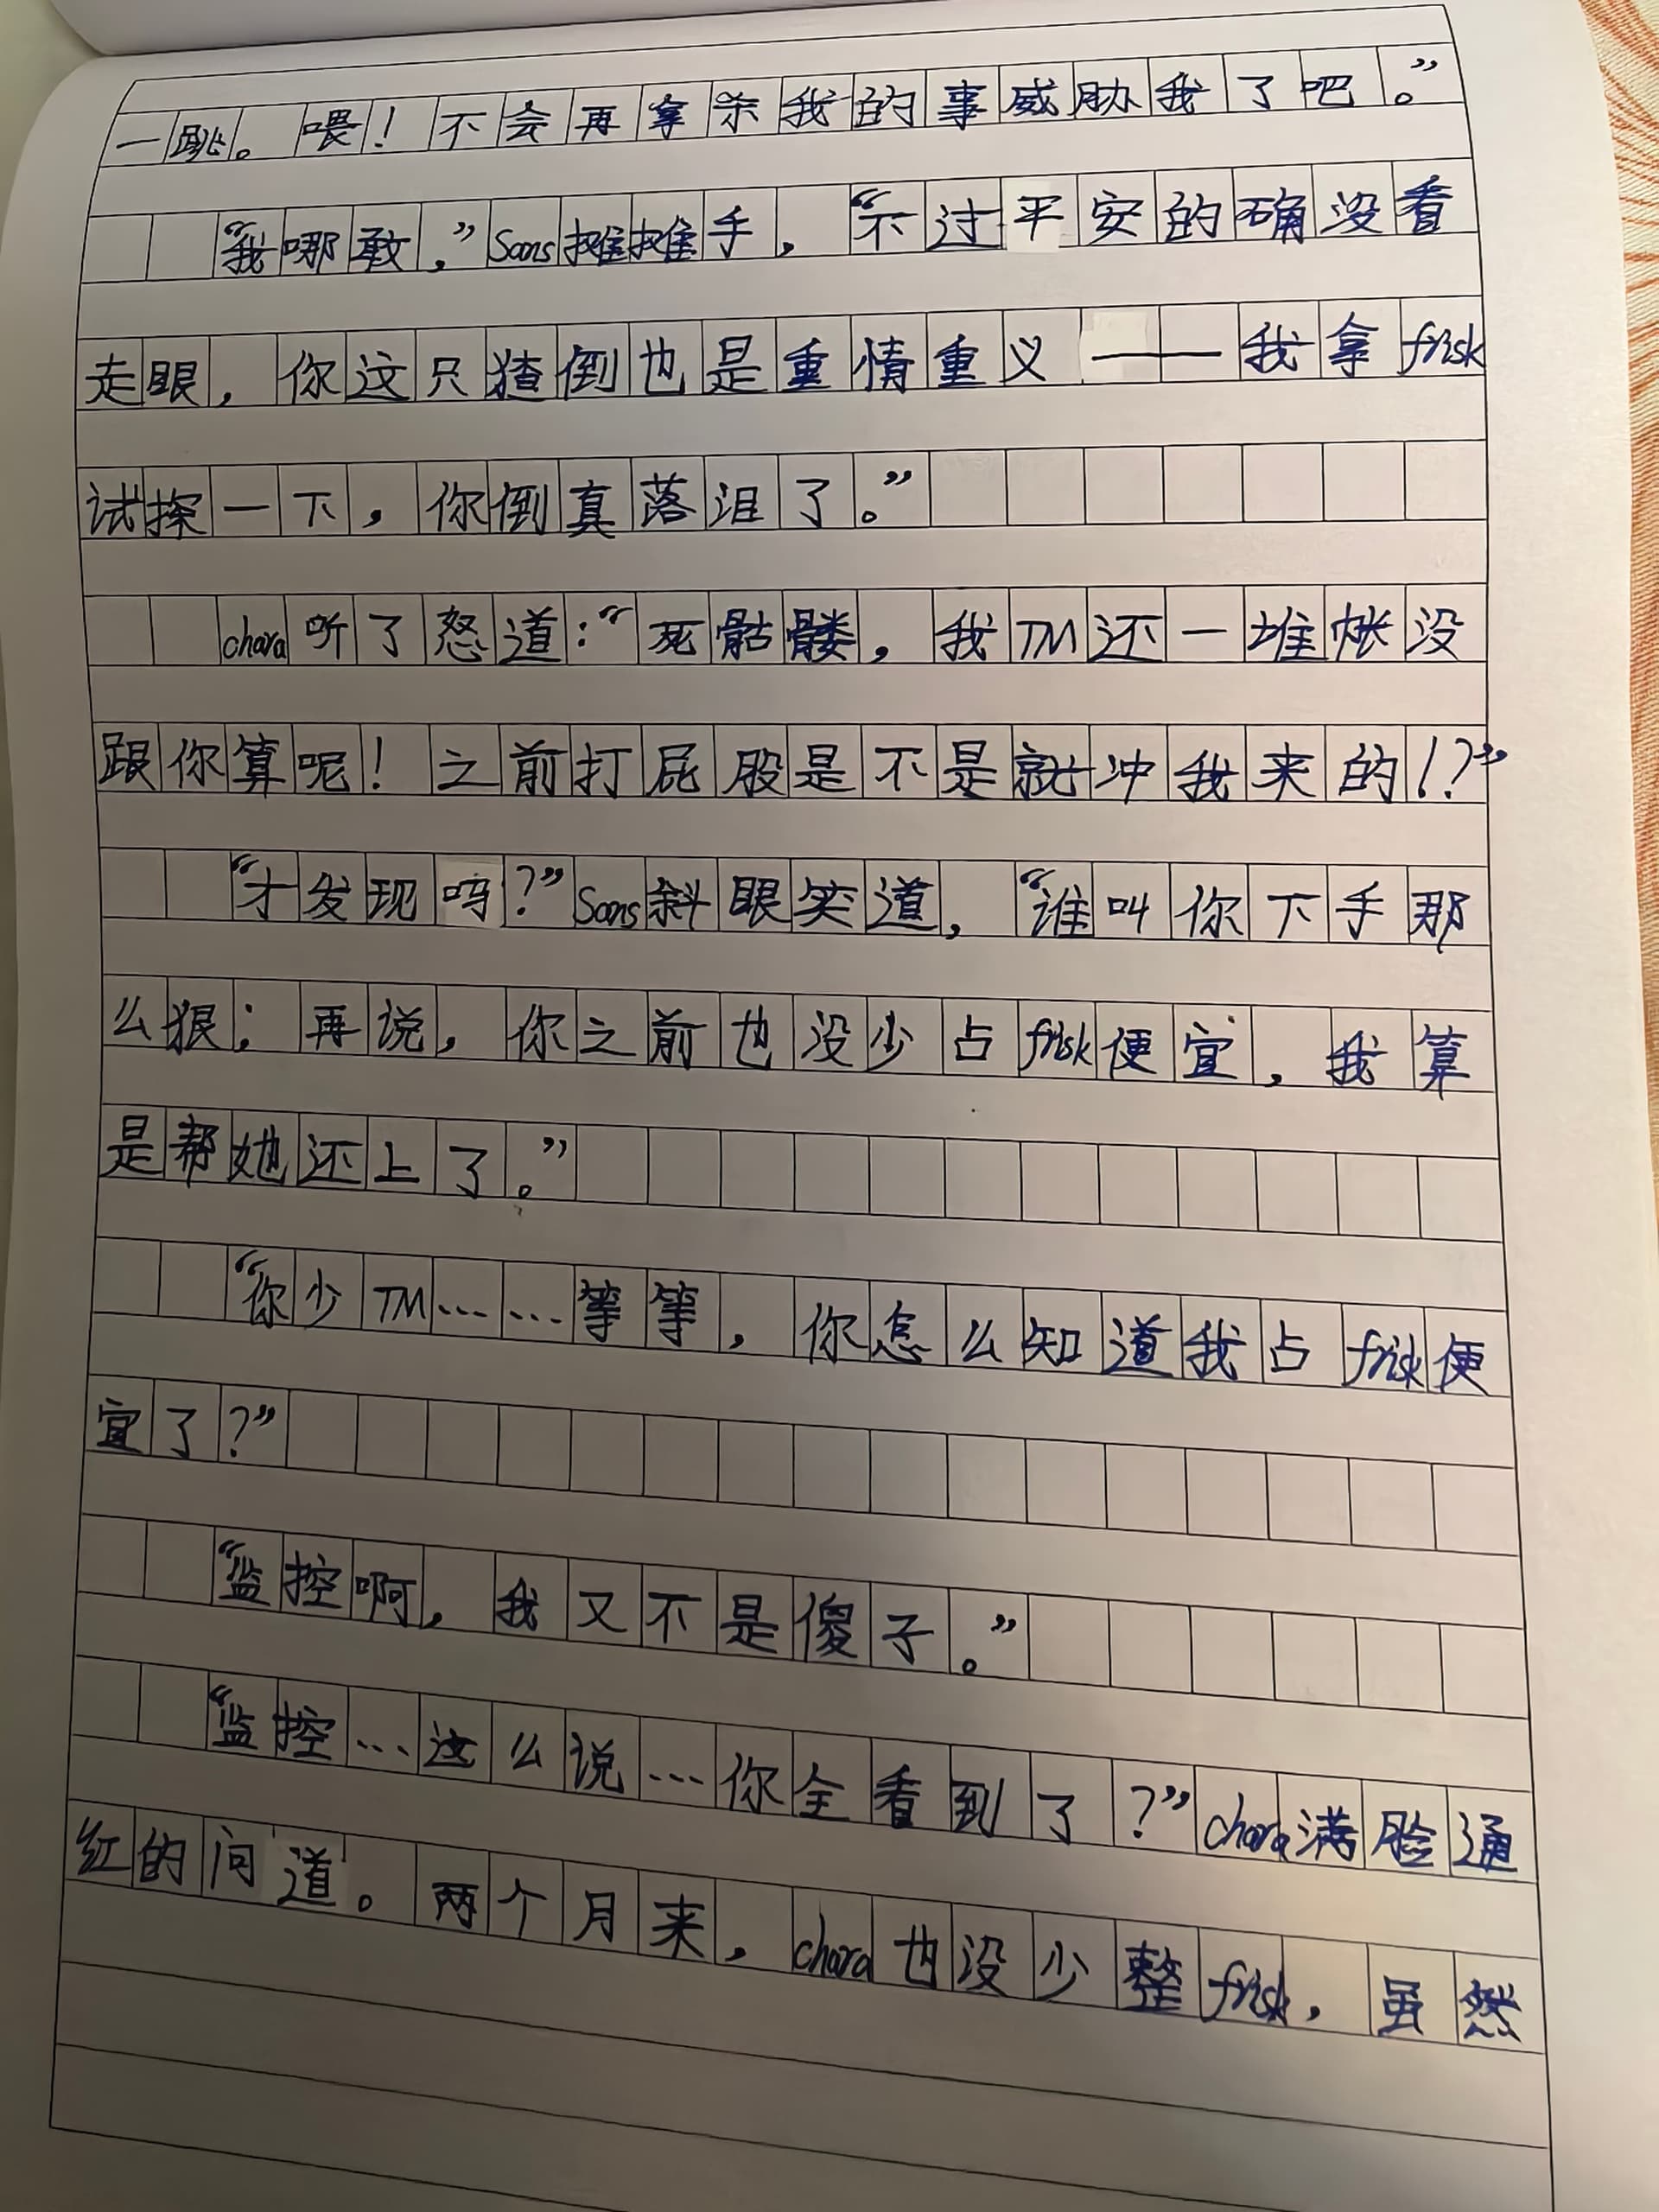 一跳。喂！不会再拿杀我的事威胁我了吧。”
“我哪敢，”Sans摧摧手，“不过平安的确没看
走眼，你这只猹倒也是重情重义——我拿frisk
试探一下，你倒真落泪了。”
chara听了怒道：“死骷髅，我TM还一堆帐没
跟你算呢！之前打屁股是不是就冲我来的!?”
“才发现吗？”Sans斜眼笑道，“谁叫你下手那
么狠；再说，你之前也没少占frisk便宜，我算
是帮她还上了。”
“你少TM……等等，你怎么知道我占frisk便
宜了？”
“监控啊，我又不是傻子。”
“监控…这么说…你全看到了？”chara满脸通
红的问道。两个月来，chara也没少整frisk，虽然